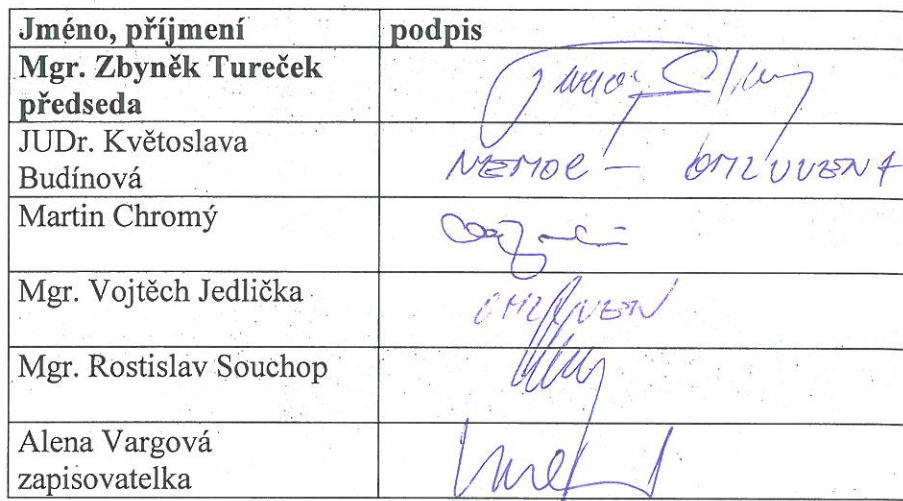 Jméno, příjmení podpis
Mgr. Zbyněk Tureček
předseda
JUDr. Květoslava
Budínová
NEMOC – OMLUVENA
Martin Chromý
Mgr. Vojtěch Jedlička OMLUVEN
Mgr. Rostislav Souchop
Alena Vargová
zapisovatelka